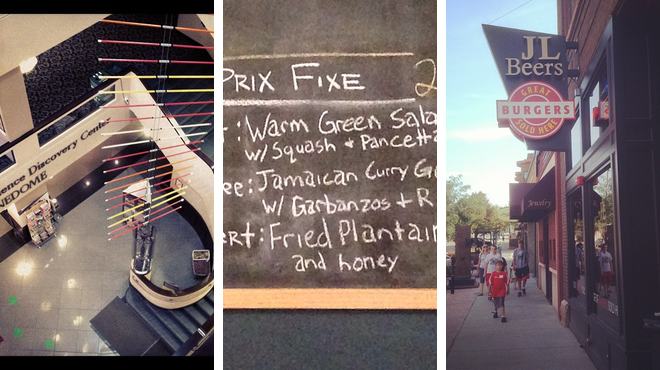 ence Discovery Center
NEDOME
PRIX FIXE 2
: Warm Green Sala
w/ Squash + Pancetta
ee: Jamaican Curry G
w/ Garbanzos + R
ert: Fried Plantain
and honey
JL
Beers
GREAT
BURGERS
SOLD HERE
Jewelry